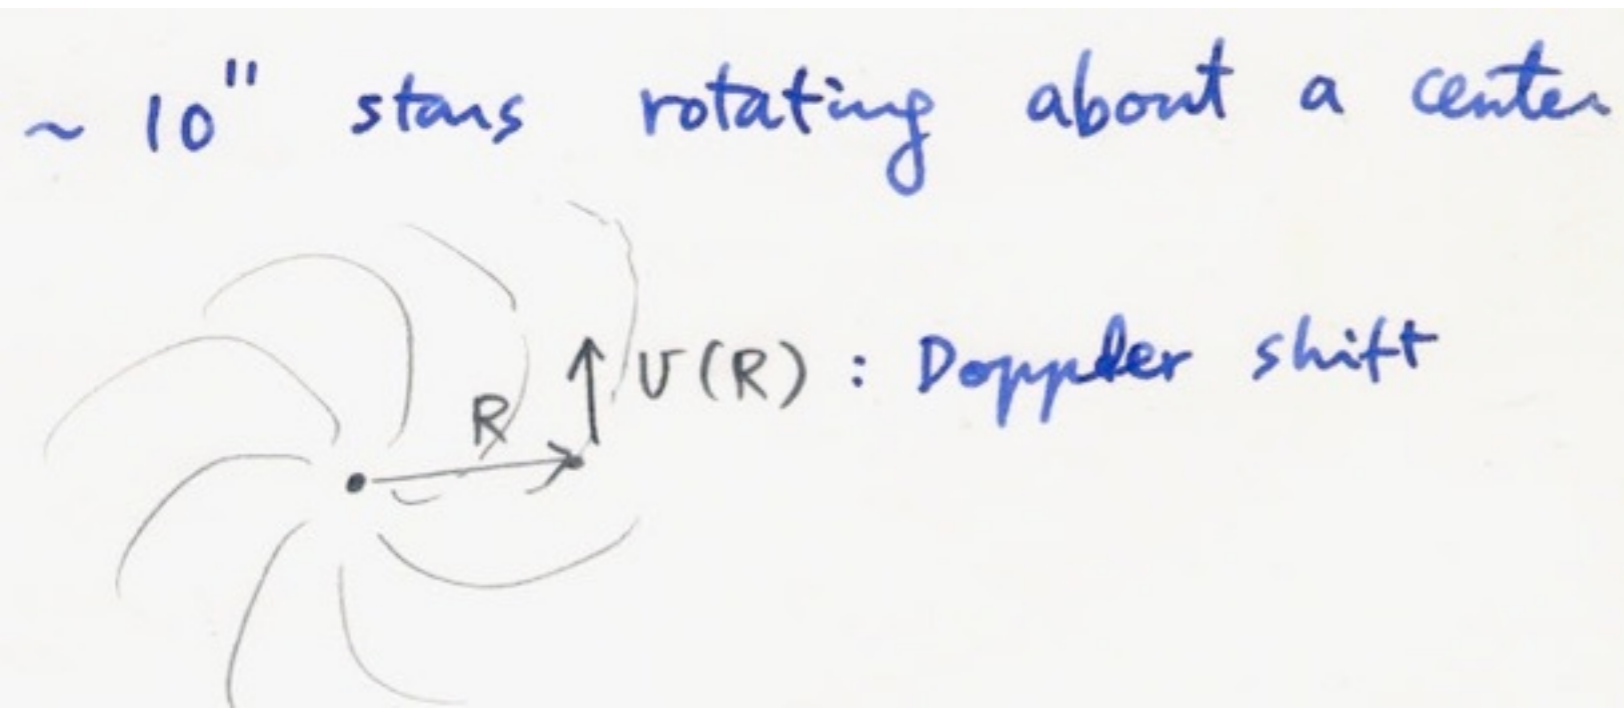 ~ 10¹¹ stars rotating about a center
R
v(R) : Doppler shift